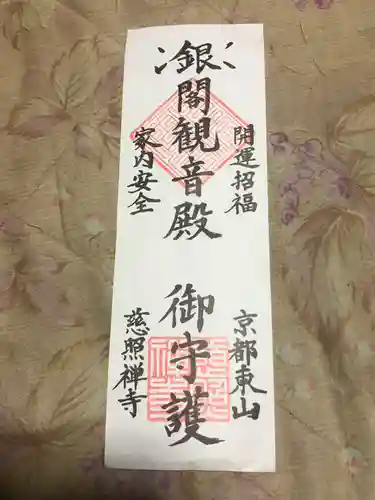 開運招福
京都東山
銀閣觀音殿
御守護
家内安全
慈照禅寺